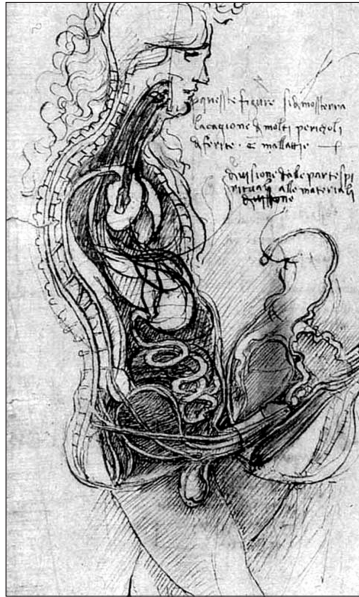 queste figure si dimosterra
lacagione d molti pericholi
d ferite · e mallattje
divisione dale parte spi
rituali alle materiali